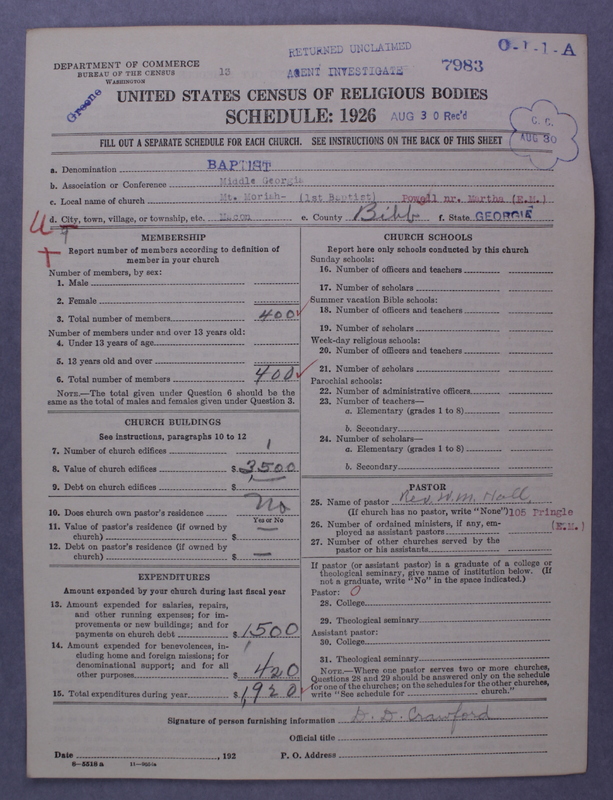 RETURNED UNCLAIMED
O-1-1-A
DEPARTMENT OF COMMERCE
BUREAU OF THE CENSUS
WASHINGTON
13
AGENT INVESTIGATE
7983
Greene
UNITED STATES CENSUS OF RELIGIOUS BODIES
SCHEDULE: 1926
AUG 30 Rec'd
C. C.
AUG 30
FILL OUT A SEPARATE SCHEDULE FOR EACH CHURCH. SEE INSTRUCTIONS ON THE BACK OF THIS SHEET
a. Denomination BAPTIST
b. Association or Conference Middle Georgia
c. Local name of church Mt. Moriah- (1st Baptist) Powell nr. Martha (E.M.)
U
d. City, town, village, or township, etc. Macon e. County Bibb f. State GEORGIA
9
MEMBERSHIP
Report number of members according to definition of
member in your church
Number of members, by sex:
1. Male
2. Female
3. Total number of members 400
Number of members under and over 13 years old:
4. Under 13 years of age
5. 13 years old and over
6. Total number of members 400
NOTE.—The total given under Question 6 should be
same as the total of males and females given under Question 3.
CHURCH BUILDINGS
See instructions, paragraphs 10 to 12
7. Number of church edifices 1
8. Value of church edifices $ 3,500
9. Debt on church edifices $ —
10. Does church own pastor's residence No
Yes or No
11. Value of pastor's residence (if owned by
church) $ —
12. Debt on pastor's residence (if owned by
church) $ —
EXPENDITURES
Amount expended by your church during last fiscal year
13. Amount expended for salaries, repairs,
and other running expenses; for im-
provements or new buildings; and for
payments on church debt $ 1,500
14. Amount expended for benevolences, in-
cluding home and foreign missions; for
denominational support; and for all
other purposes $ 420
15. Total expenditures during year $ 1,920
CHURCH SCHOOLS
Report here only schools conducted by this church
Sunday schools:
16. Number of officers and teachers
17. Number of scholars
Summer vacation Bible schools:
18. Number of officers and teachers
19. Number of scholars
Week-day religious schools:
20. Number of officers and teachers
21. Number of scholars
Parochial schools:
22. Number of administrative officers
23. Number of teachers—
a. Elementary (grades 1 to 8)
b. Secondary
24. Number of scholars—
a. Elementary (grades 1 to 8)
b. Secondary
PASTOR
25. Name of pastor Rev. W. M. Hall,
(If church has no pastor, write "None") 105 Pringle
26. Number of ordained ministers, if any, em-
ployed as assistant pastors (E.M.)
27. Number of other churches served by the
pastor or his assistants
If pastor (or assistant pastor) is a graduate of a college or
theological seminary, give name of institution below. (If
not a graduate, write "No" in the space indicated.)
Pastor: O
28. College
29. Theological seminary
Assistant pastor:
30. College
31. Theological seminary
NOTE.—Where one pastor serves two or more churches,
Questions 28 and 29 should be answered only on the schedule
for one of the churches; on the schedules for the other churches,
write "See schedule for church."
Signature of person furnishing information D. D. Crawford
Official title
Date , 192 P. O. Address
8—5518 a 11—9654a